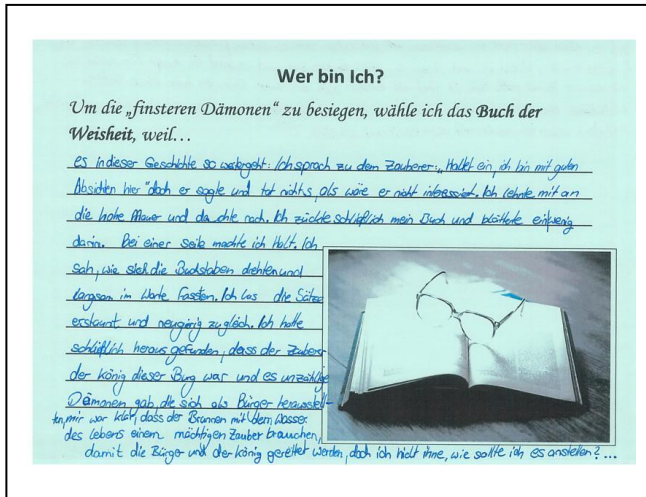 Wer bin Ich?
Um die „finsteren Dämonen“ zu besiegen, wähle ich das Buch der
Weisheit, weil…
es in dieser Geschichte so weitergeht: Ich sprach zu dem Zauberer: „Haltet ein, ich bin mit guten
Absichten hier" doch er sagte und tat nichts, als wäre er nicht interessiert. Ich lehnte mit an
die hohe Mauer und dachte nach. Ich zückte schließlich mein Buch und blätterte ein wenig
darin. Bei einer Seite machte ich Halt. Ich
sah, wie sich die Buchstaben drehten und
langsam im Worte fassten. Ich las die Sätze
erstaunt und neugierig zugleich. Ich hatte
schließlich heraus gefunden, dass der Zauberer
der König dieser Burg war und es unzählige
Dämonen gab, die sich als Bürger herausstell-
ten, mir war klar, dass der Brunnen mit dem Wasser
des Lebens einem mächtigen Zauber brauchen,
damit die Bürger und der König gerettet werden, doch ich, wie sollte ich es anstellen? ...